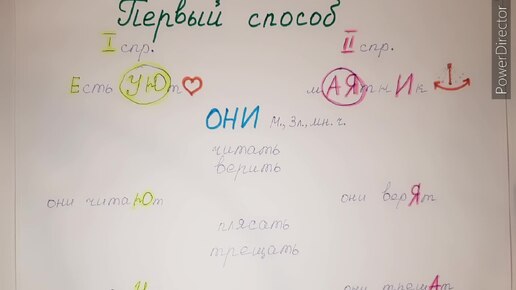 Первый способ
I спр. II спр.
Есть УЮт мАЯтнИк
ОНИ Н., 3л., мн. ч.
читать
верить
они читаЮт они верЯт
плясать
трещать
они трещАт
PowerDirector